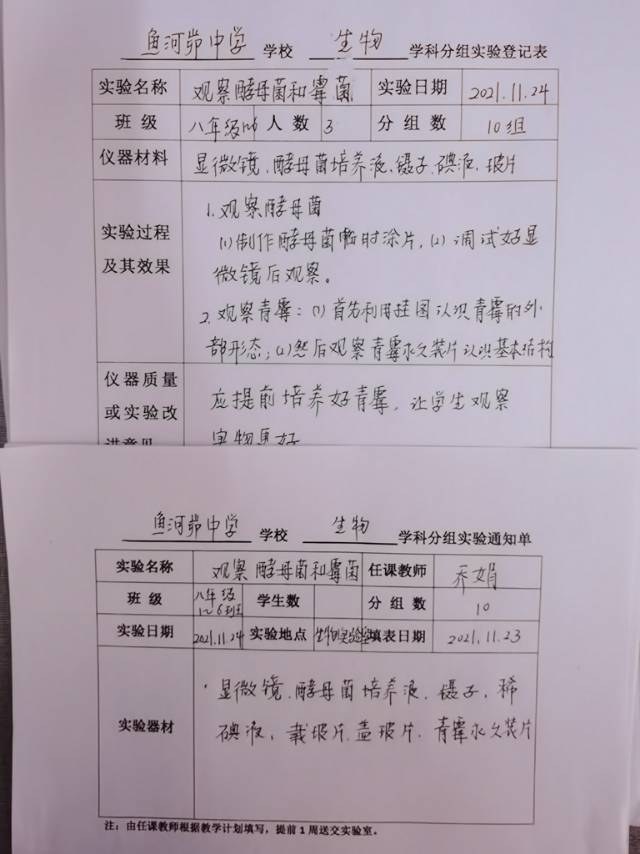 鱼河峁中学 学校 生物 学科分组实验登记表
实验名称 观察酵母菌和霉菌 实验日期 2021.11.24
班级 八年级 人数 3 分组数 10组
仪器材料 显微镜、酵母菌培养液、镊子、碘液、玻片
实验过程及其效果
1. 观察酵母菌
(1)制作酵母菌临时涂片, (2) 调试好显
微镜后观察。
2. 观察青霉: (1) 首先利用挂图认识青霉的外
部形态; (2)然后观察青霉永久装片认识基本结构
仪器质量
或实验改
进意见
应提前培养好青霉, 让学生观察
实物更好
鱼河峁中学 学校 生物 学科分组实验通知单
实验名称 观察酵母菌和霉菌 任课教师 乔娟
班级 八年级 1~6班 学生数 分组数 10
实验日期 2021.11.24 实验地点 生物实验室 填表日期 2021.11.23
实验器材
显微镜、酵母菌培养液、镊子, 稀
碘液, 载玻片、盖玻片、青霉永久装片
注：由任课教师根据教学计划填写，提前 1 周送交实验室。